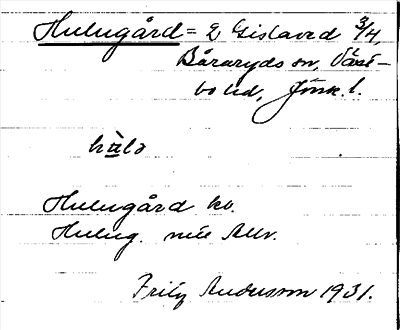 Hulugård = L Gislaved 3/4,
Båraryds sn, Väst-
bo hd, Jönk. l.
hu̲lə
Hulugård kv.
Hulug. mee Allv.
Fritz Andersson 1931.